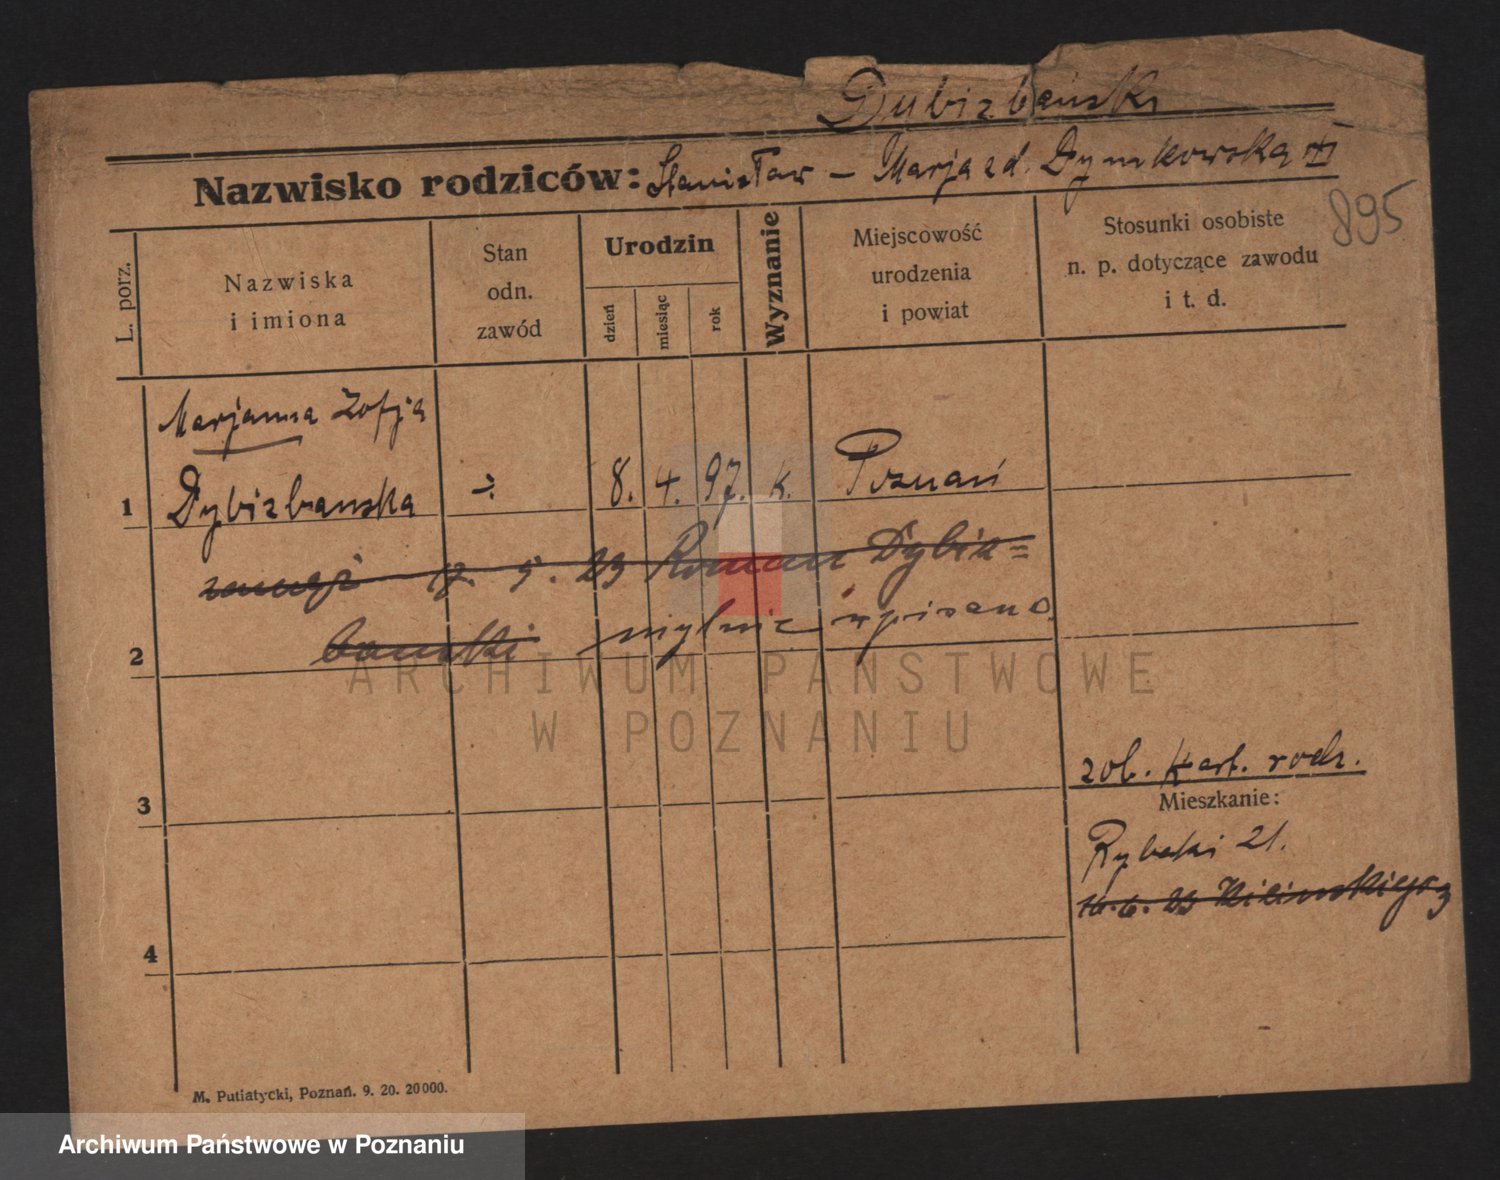 Dybizbański
Nazwisko rodziców: Stanisław – Marja zd. Dymkowska
895
L. porz.
Nazwiska
i imiona
Stan
odn.
zawód
Urodzin
dzień
miesiąc
rok
Wyznanie
Miejscowość
urodzenia
i powiat
Stosunki osobiste
n. p. dotyczące zawodu
i t. d.
Marjanna Zofja
1 Dybizbańska ÷ 8. 4. 97. k. Poznań
zamęż 17. 5. 23 Roman Dybiz=
2 bański mylnie wpisano.
ARCHIWUM PAŃSTWOWE
W POZNANIU
zob. kart. rodz.
3
Mieszkanie:
Rybaki 21.
16.6.23 Kilińskiego 3
4
M. Putiatycki, Poznań. 9. 20. 20000.
Archiwum Państwowe w Poznaniu